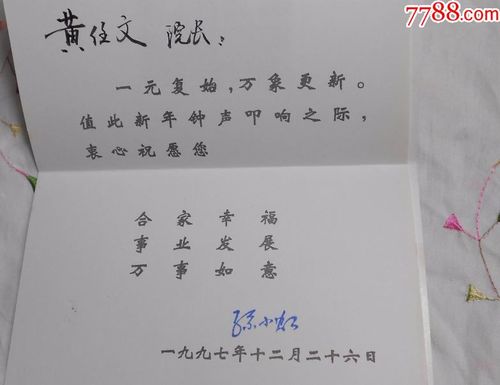 7788.com
黄任文 院长：
一元复始，万象更新。
值此新年钟声叩响之际，
衷心祝愿您
合家幸福
事业发展
万事如意
一九九七年十二月二十六日